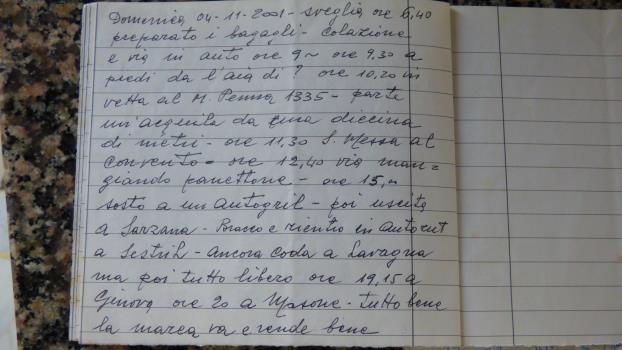 Domenica 04-11-2001- sveglia ore 6,40
preparato i bagagli - colazione
e via in auto ore 9~ ore 9,30 a
piedi da l'aia di ? ore 10,20 in
vetta al M. Penna 1335 - parte
un'aquila da una diecina
di metri - ore 11,30 S. Messa al
convento = ore 12,40 via man=
giando panettone - ore 15,~
sosto a un autogril - poi uscita
a Sarzana - Bracco e rientro in autout
a Sestril - ancora coda a Lavagna
ma poi tutto libero ore 19,15 a
Genova ore 20 a Masone - tutto bene
la marea va e rende bene